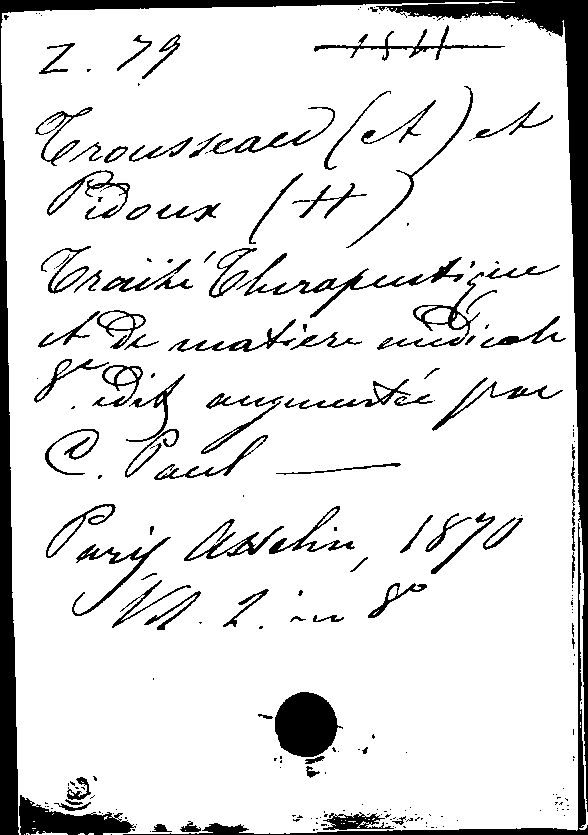 Z. 79 1511
Trousseau (A) et
Pidoux (H).
Traité Therapeutique
et de matiere médicale
8e edit augmentée par
C. Paul —
Paris Asselin, 1870
Vol. 2. in 8º